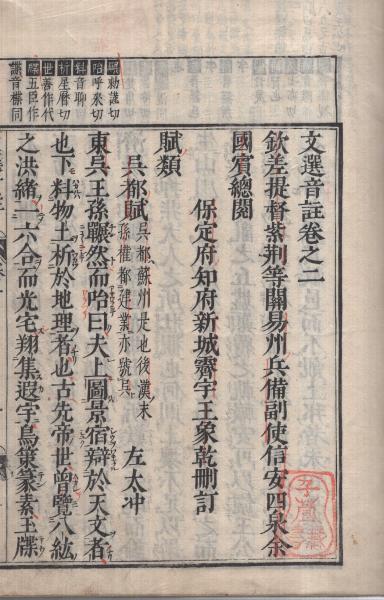 文選音註卷之二
欽差提督紫荊等關易州兵備副使信安四泉余
國賓總閱
保定府知府新城霽宇王象乾刪訂
賦類
吳都賦
吳都蘇州是也後漢末
孫權都建業亦號吳
左太冲
東吳王孫囅然而咍曰夫上圖景宿辯於天文者
也下料物土析於地理者也古先帝世曾覽八紘
之洪緒一六合而光宅翔集遐宇鳥策篆素玉牒
囅勑謹切
咍呼來切
料音聊
析星曆切
世善作代
牒五臣作
諜音牒同